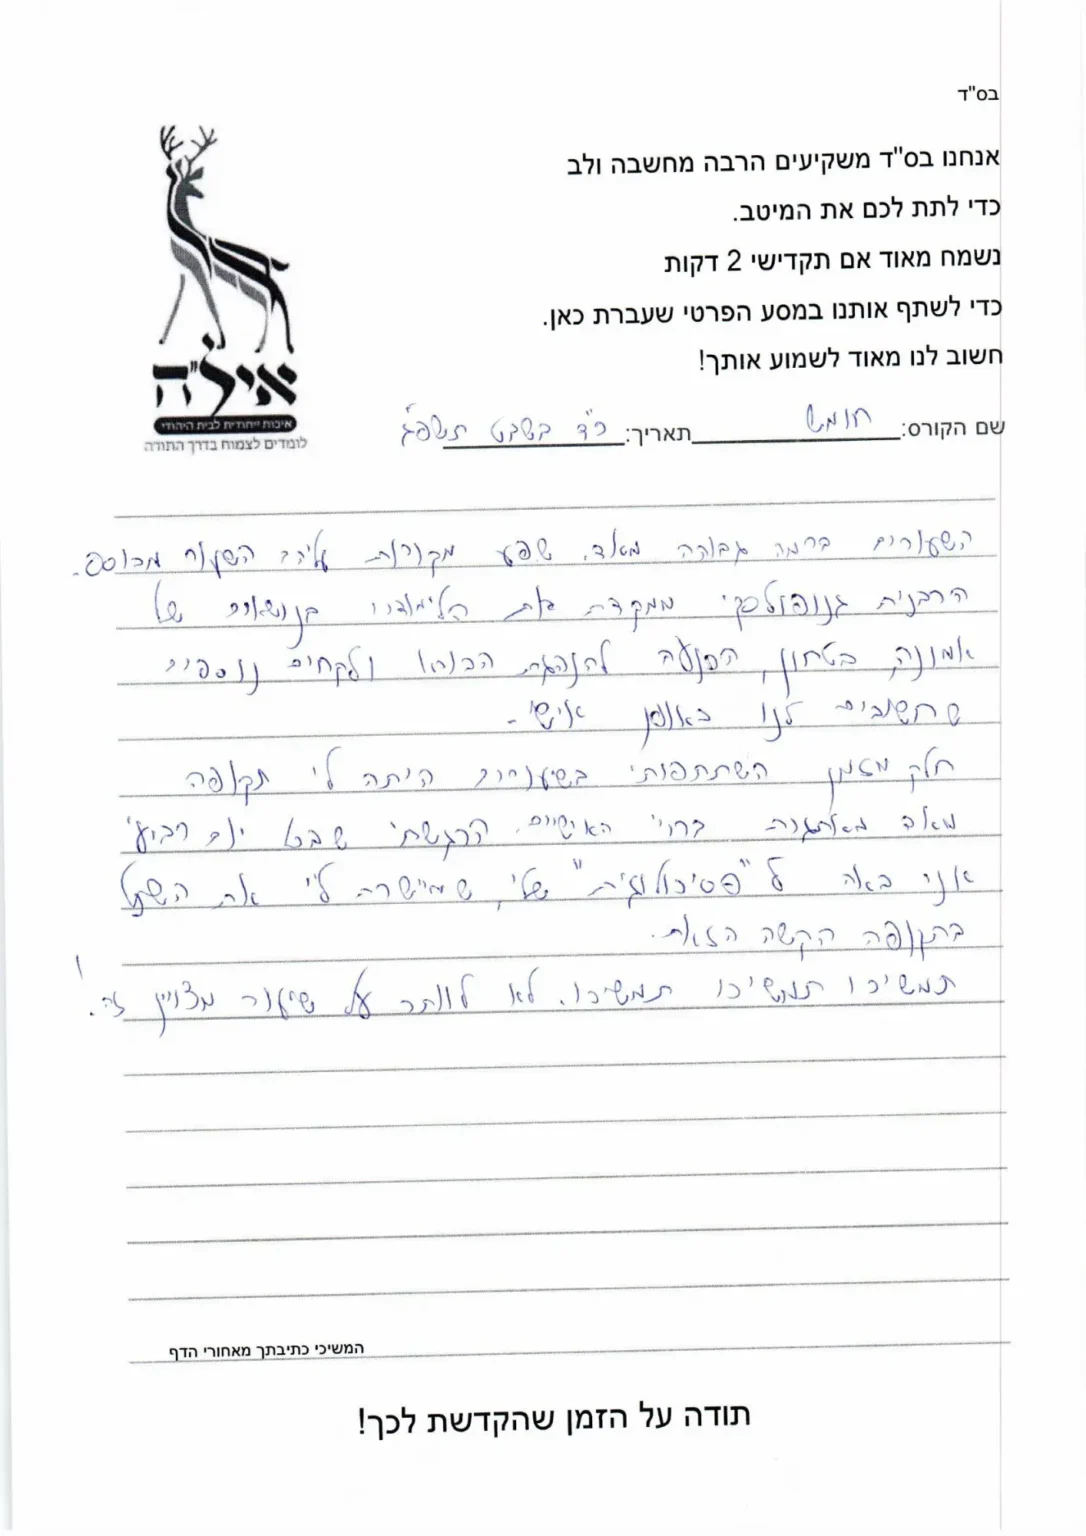 בס"ד
אנחנו בס"ד משקיעים הרבה מחשבה ולב
כדי לתת לכם את המיטב.
נשמח מאוד אם תקדישי 2 דקות
כדי לשתף אותנו במסע הפרטי שעברת כאן.
חשוב לנו מאוד לשמוע אותך!
איל"ה
איכות ייחודית לבית היהודי
לומדים לצמוח בדרך התורה
שם הקורס: חומש תאריך: כ"ד בשבט תשפ"ג
השעורים ברמה גבוהה מאוד. שפע מקורות עליהם השעור מבוסס.
הרבנית גנופולסקי ממקדת את הלימוד בנושאים של
אמונה, בטחון, הכנעה להנהגת הבורא ולקחים נוספים
שחשובים לנו באופן אישי.
חלק מזמן השתתפותי בשיעורים היתה לי תקופה
מאוד מאתגרת בחיי האישיים. הרגשתי שבכל יום רביעי
אני באה ל"פסיכולוגית" שלי, שמיישרת לי את השכל
בתקופה הקשה הזאת.
תמשיכו תמשיכו תמשיכו. לא לוותר על שיעור מצוין זה!
המשיכי כתיבתך מאחורי הדף
תודה על הזמן שהקדשת לכך!